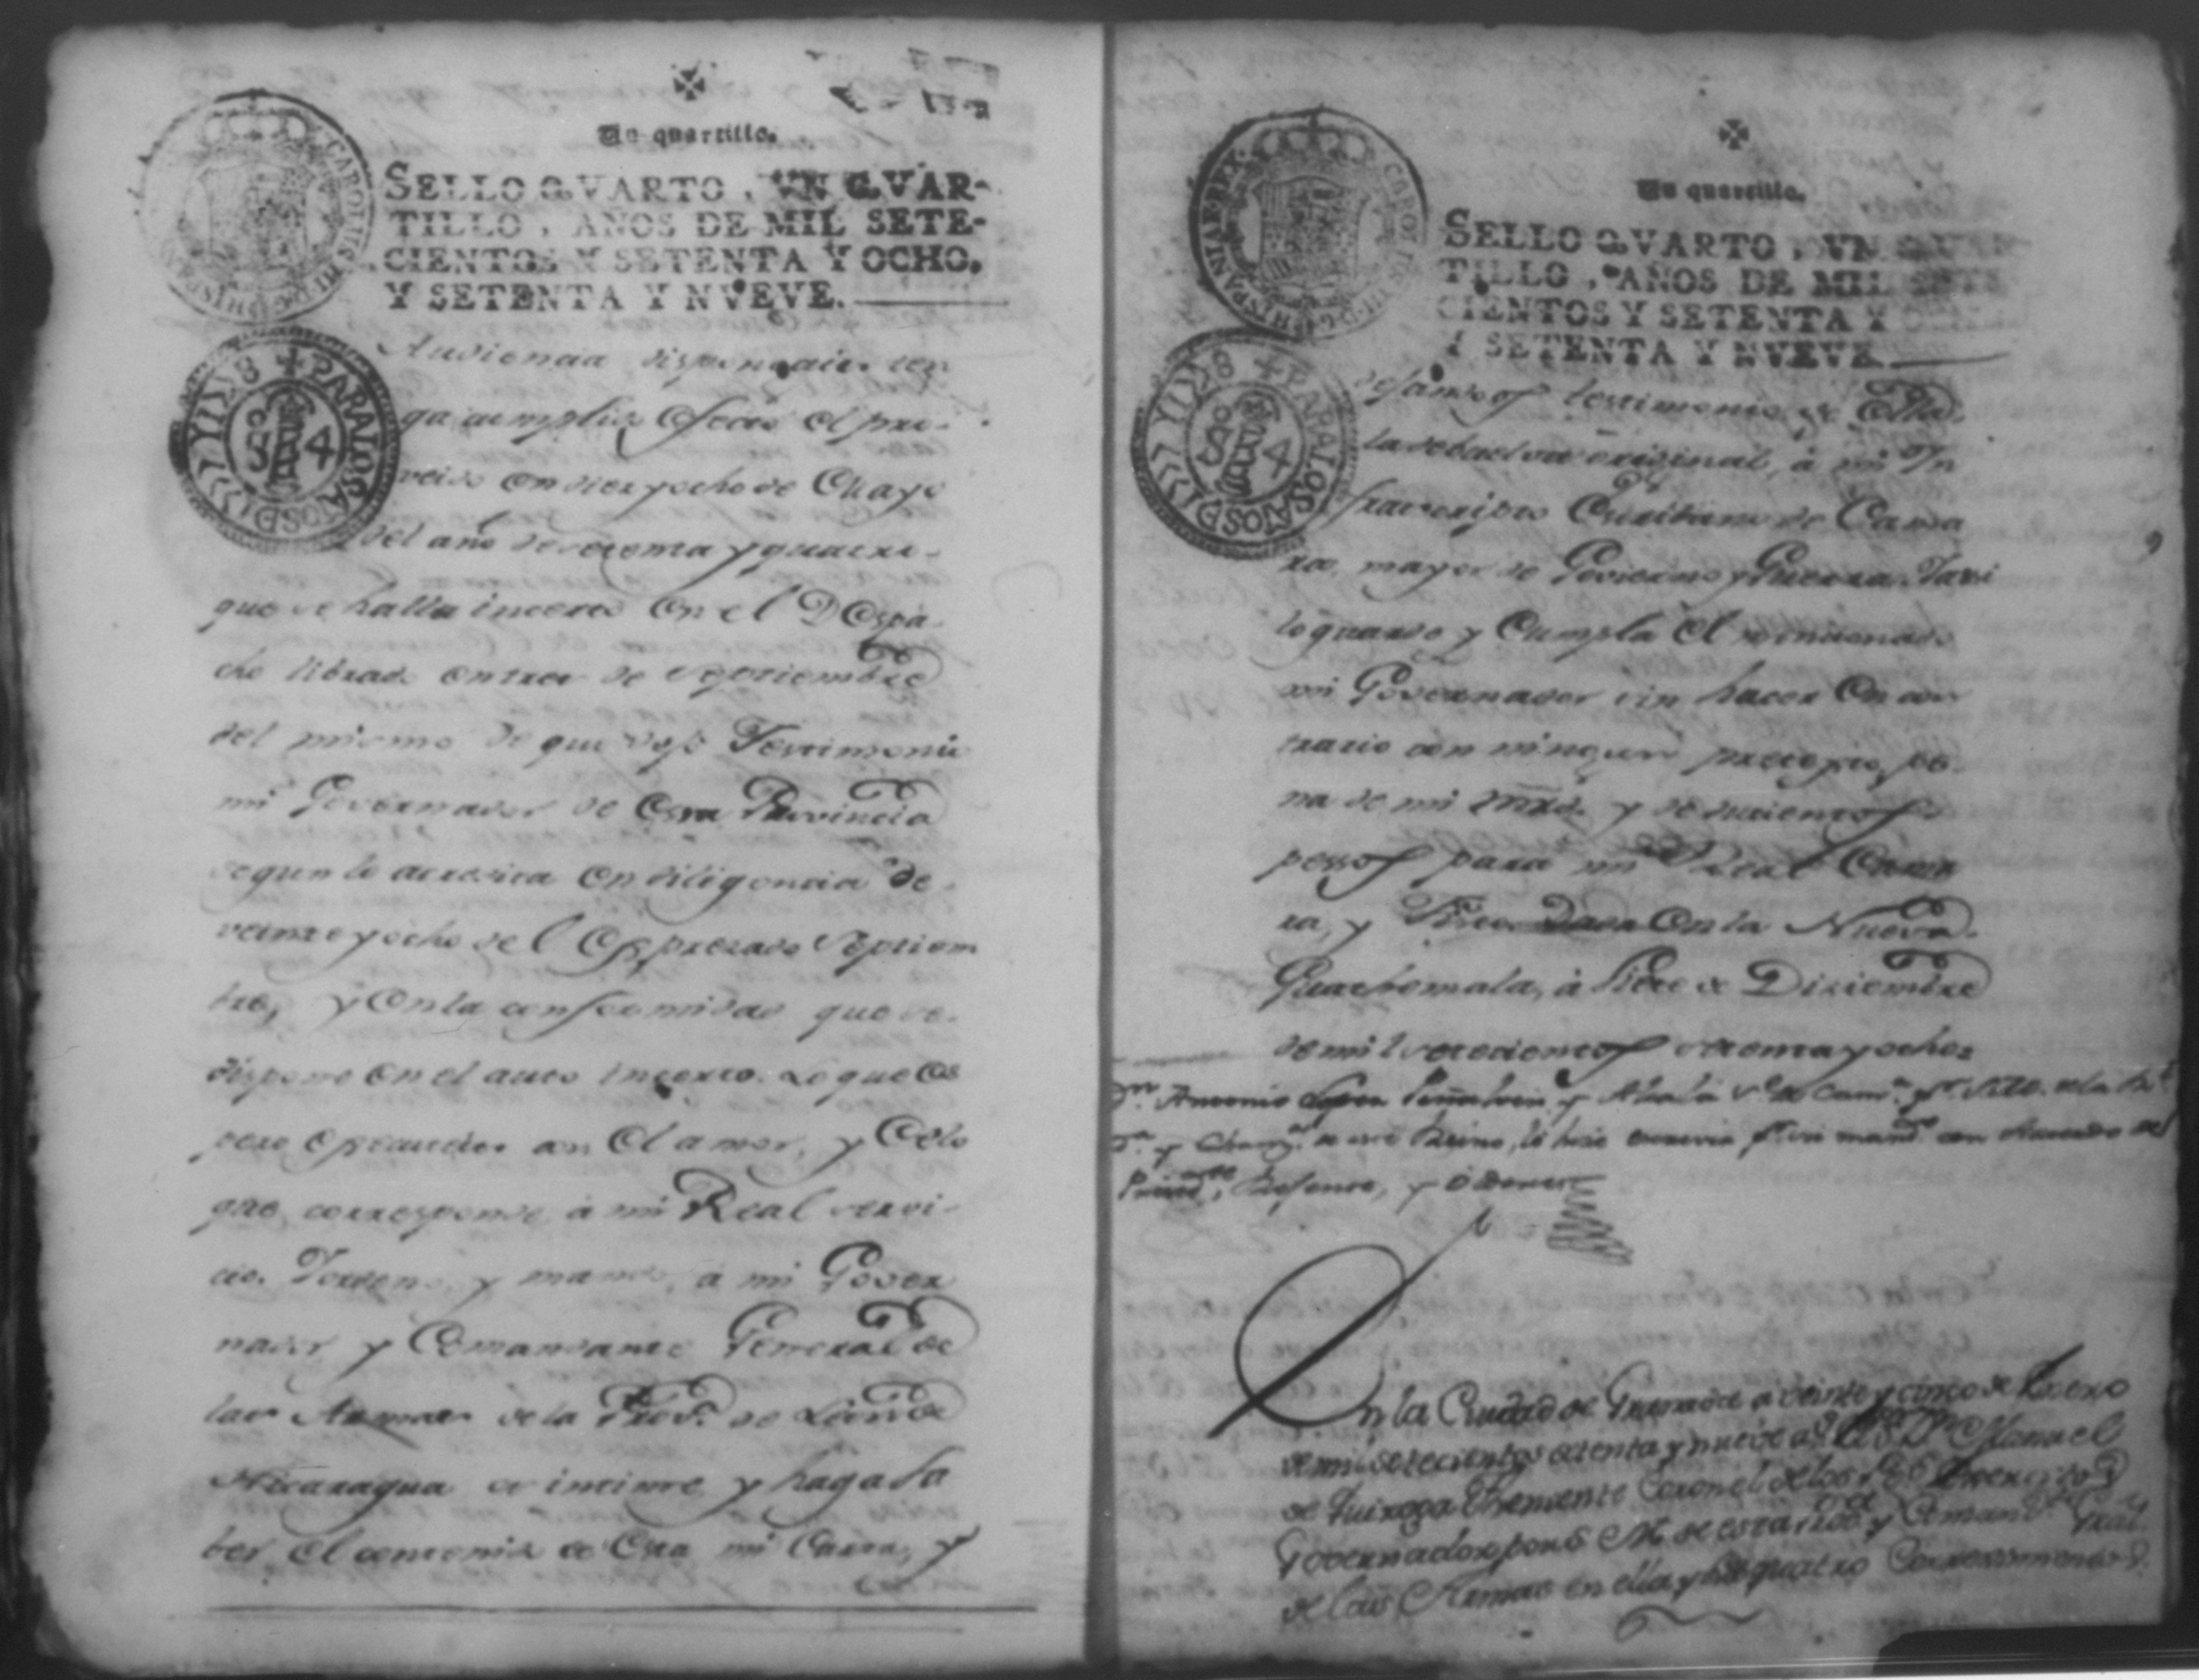 Un quartillo.
SELLO QVARTO, VN QVAR-
TILLO, AÑOS DE MIL SETE-
CIENTOS Y SETENTA Y OCHO,
Y SETENTA Y NVEVE.
CAROLUS III D G HISPAN
PARA LOS AÑOS D 1777 Y 1778
S 4
Audiencia dispongais ten
ga cumplido efecto el pro-
veido en diez y ocho de Mayo
del año de setenta y quatro
que se halla incerto en el Despa-
cho librado en tres de Septiembre
del mismo de que dio Testimonio
mi Governador de esa Provincia
segun lo acredita en diligencia de
veinte y ocho del Expresado Septiem
bre, y en la conformidad que se
dispone en el auto incerto. Lo que es
pero Executeis con el amor, y Celo
que corresponde à mi Real servi-
cio. Y ordeno y mando, à mi Gover
nador y Comandante General de
las Armas de la Prov.a de Leon de
Nicaragua os intime y haga sa
ber el contenido de esta mi Carta, y
Un quartillo.
SELLO QVARTO, VN QVAR
TILLO, AÑOS DE MIL SETE
CIENTOS Y SETENTA Y OCHO
Y SETENTA Y NVEVE.
CAROLUS III D G HISPANIAR REX
PARA LOS AÑOS D 1777 Y 1778
S 4
dejandoos testimonio de Ella
la debuelva original, à mi In
frascripto Escribano de Cama
ra, mayor de Govierno y Guerra. Y asi
lo guarde y Cumpla el mencionado
mi Governador sin hacer en con
trario con ningun pretexto, pe-
na de mi mrd. y de ducientos
pessos para mi Real Cama
ra, y Fisco. Dada en la Nueva
Guathemala, à siete de Diziembre
de mil setecientos setenta y ocho
Dn. Antonio Lopez Peñalver y Alcalá
y Chanz.a de este Reino, lo hice escrevir p.r su mand.o con Acuerdo de
Presid.te, Regente, y Oidores
En la Ciudad de Granada a veinte y cinco de Enero
de mil setecientos setenta y nueve a. El S. Dn. Manuel
de Quiroga Theniente Coronel de los R.s Exercitos
Governador por S. M. de esta Prov.a y Comand.te Gral.
de las Armas en ella y sus quatro Corregimientos.